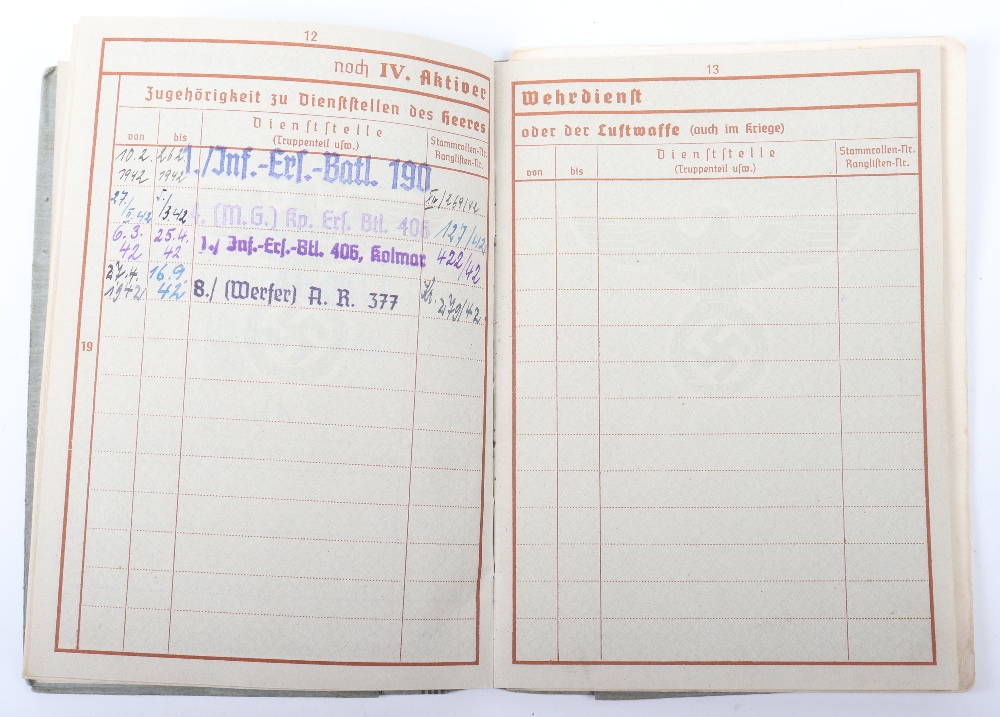 12
noch IV. Aktiver
Zugehörigkeit zu Dienststellen des Heeres
von bis Dienststelle (Truppenteil usw.) Stammrollen-Nr. Ranglisten-Nr.
10.2. 1942 26 2 1942 1./Inf.-Ers.-Batl. 190 /239/42
27/II.42 /3.42 4. (M.G.) Kp. Ers. Btl. 406 127/42
6.3. 42 25.4. 42 1./ Inf.-Ers.-Btl. 406, Kolmar 422/42
27.4. 1942 16.9. 42 8./ (Werfer) A. R. 377 279/42
19
13
Wehrdienst
oder der Luftwaffe (auch im Kriege)
von bis Dienststelle (Truppenteil usw.) Stammrollen-Nr. Ranglisten-Nr.